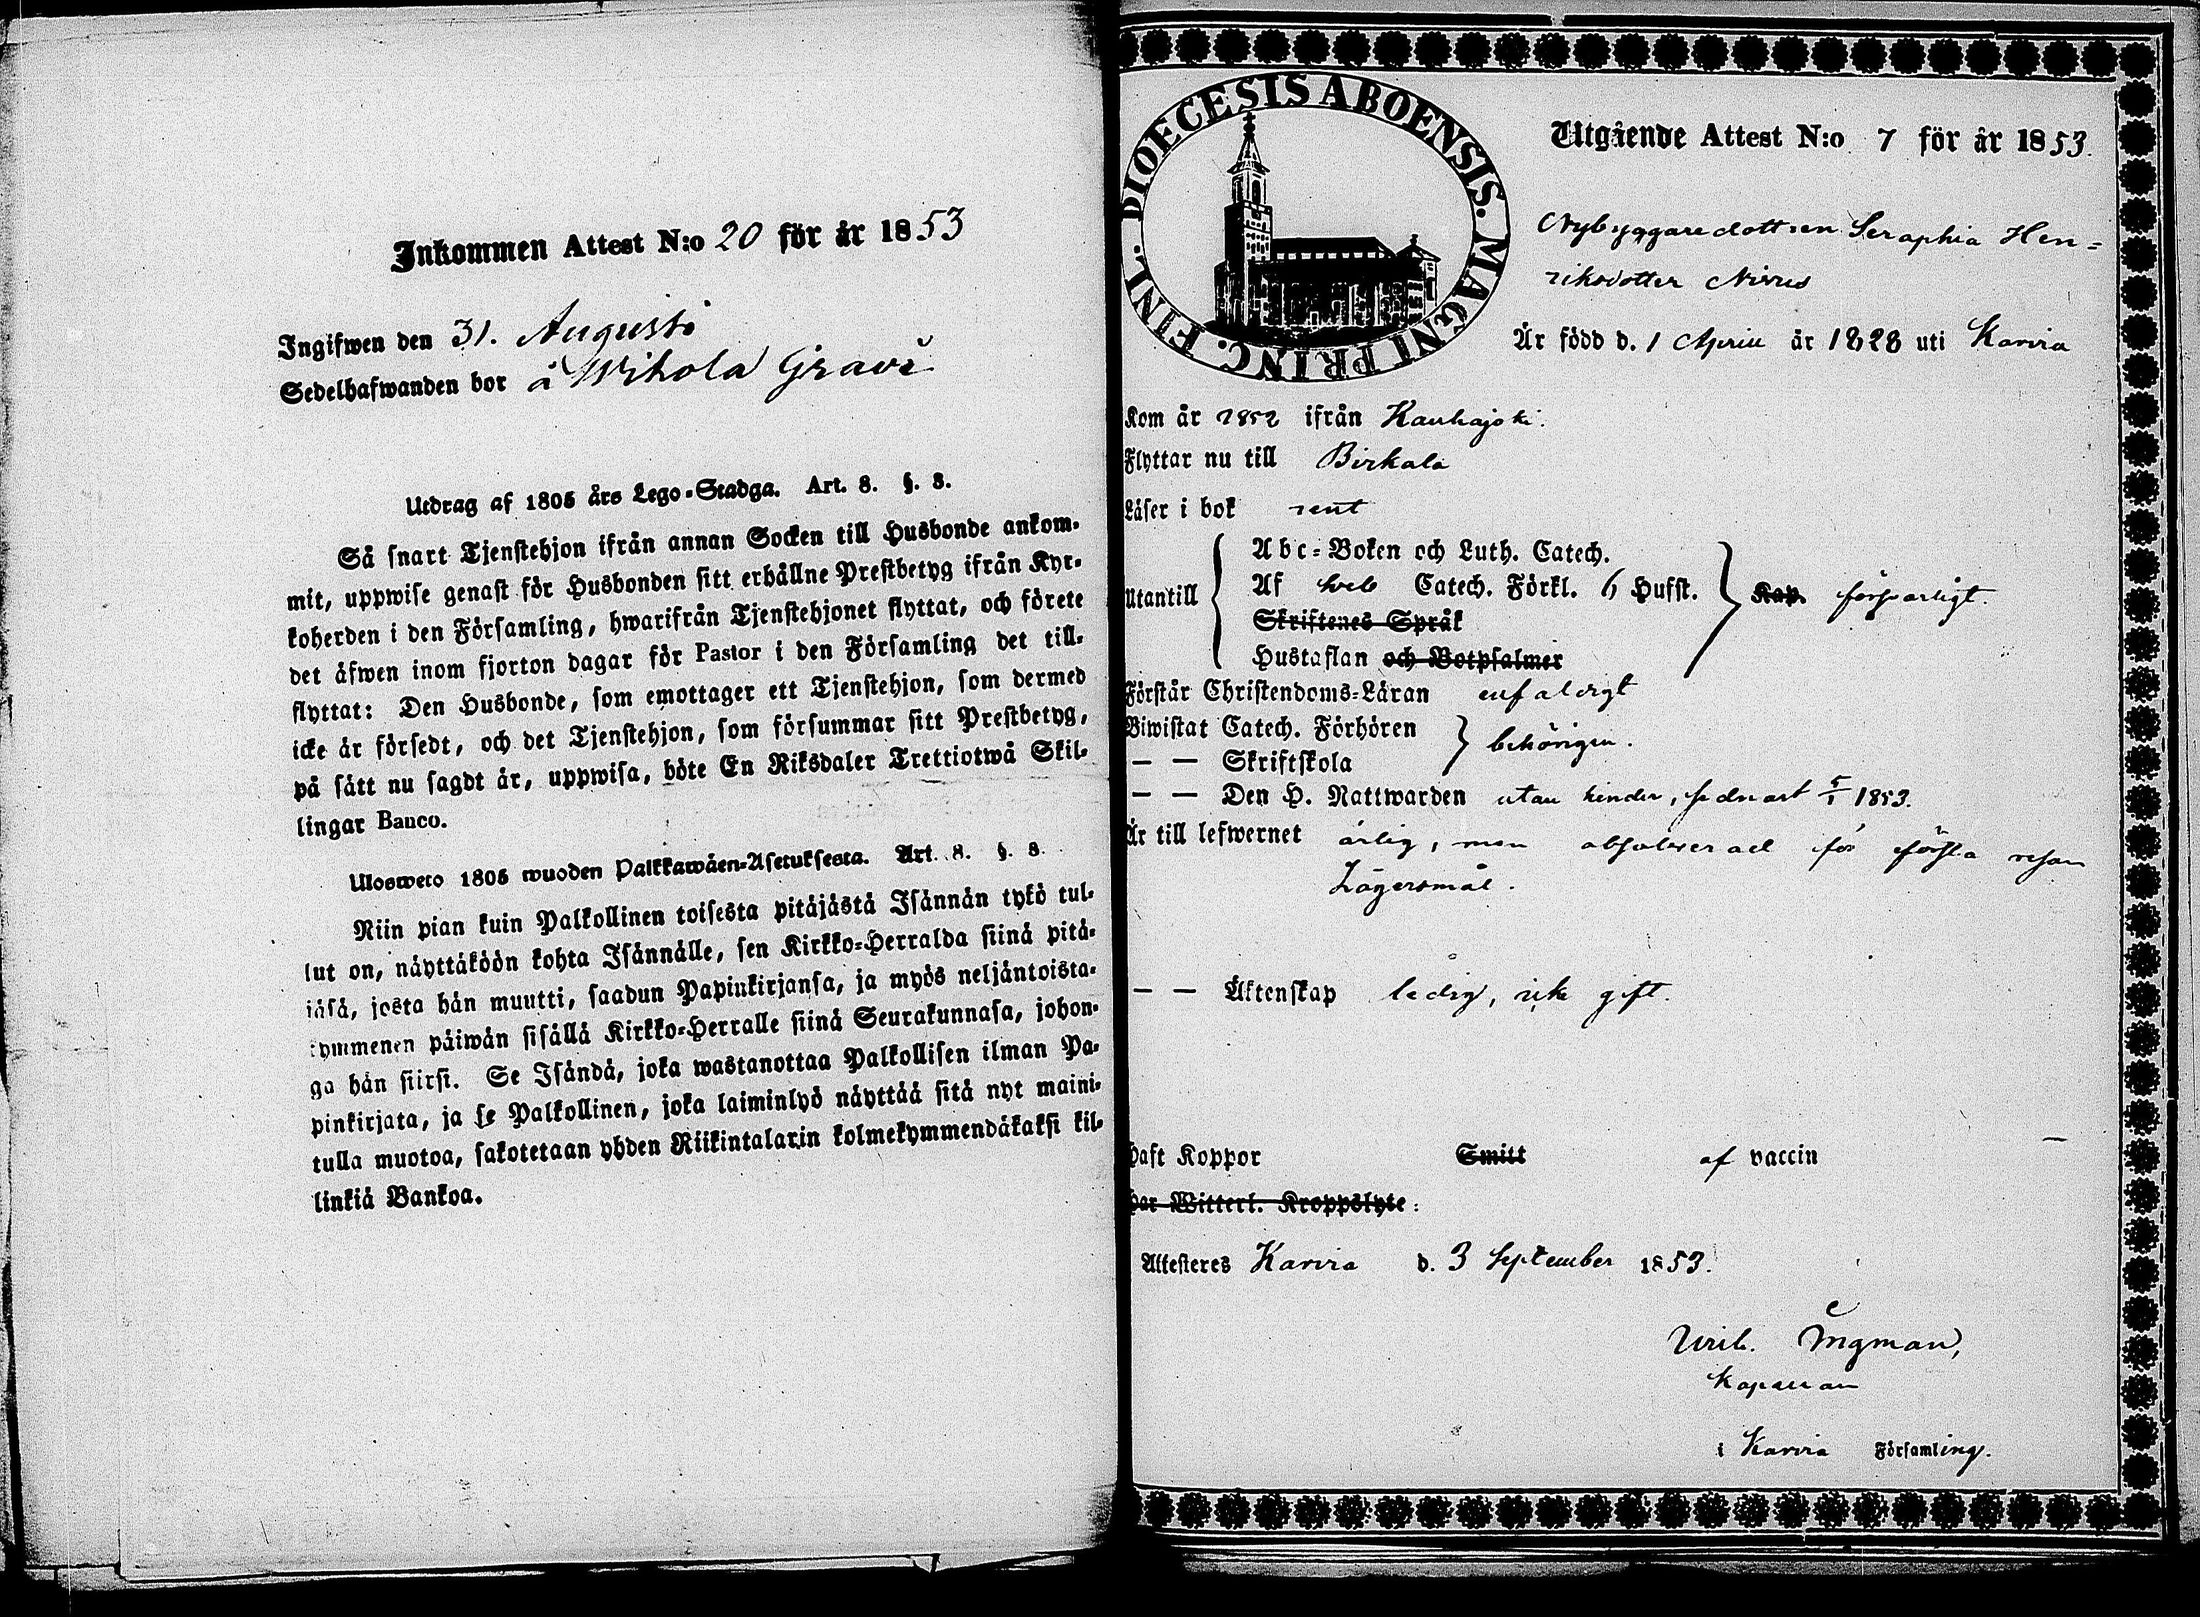 Inkommen Attest N:o 20 för år 1853
Ingifwen den 31. Augusti
Sedelhafwanden bor å Wihola
Utdrag af 1805 års Lego-Stadga. Art. 8. §. 8.
Så snart Tjenstehjon ifrån annan Socken till Husbonde ankom-
mit, uppwise genast för Husbonden sitt erhållne Prestbetyg ifrån Kyr-
koherden i den Församling, hwarifrån Tjenstehjonet flyttat, och förete
det äfwen inom fjorton dagar för Pastor i den Församling det till-
flyttat: Den Husbonde, som emottager ett Tjenstehjon, som dermed
icke är försedt, och det Tjenstehjon, som försummar sitt Prestbetyg,
på sätt nu sagdt är, uppwisa, böte En Riksdaler Trettiotwå Skil-
lingar Banco.
Ulosweto 1805 wuoden Palkkawäen-Asetuksesta. Art. 8. §. 8.
Niin pian kuin Palkollinen toisesta pitäjästä Isännän tykö tul-
lut on, näyttäköön kohta Isännälle, sen Kirkko-Herralda siinä pitä-
jäsä, josta hän muutti, saadun Papinkirjansa, ja myös neljäntoista-
kymmenen päiwän sisällä Kirkko-Herralle siinä Seurakunnasa, johon-
ga hän siirsi. Se Isändä, joka wastanottaa Palkollisen ilman Pa-
pinkirjata, ja se Palkollinen, joka laiminlyö näyttää sitä nyt maini-
tulla muotoa, sakotetaan yhden Riikintalarin kolmekymmendäkaksi kil-
linkiä Bankoa.
DIOECESIS ABOENSIS. MAGNI PRINC. FINL.
Utgående Attest N:o 7 för år 1853.
Nybyggaredottren Seraphia Hen-
riksdotter
Är född d. 1 April år 1828 uti Karvia
Kom år 1852 ifrån Kauhajoki.
Flyttar nu till Birkala
Läser i bok rent
Utantill
Abc-Boken och Luth. Catech.
Af Catech. Förkl. 6 Hufst. Kap. försvarligt.
Skriftenes Språk
Hustaflan och Botpsalmer
Förstår Christendoms-Läran enfaldigt
Biwistat Catech. Förhören
behörigen.
— — Skriftskola
— — Den H. Nattwarden utan hinder, sednast 5/1 1853.
Är till lefwernet ärlig, men absolverad för första resan
Lägersmål.
— — Äktenskap ledig, icke gift.
Haft Koppor Smitt af vaccin
Har Witterl. Kroppslyte:
Attesteres Karvia d. 3 September 1853.
Ingman,
Kapellan
i Karvia Församling.